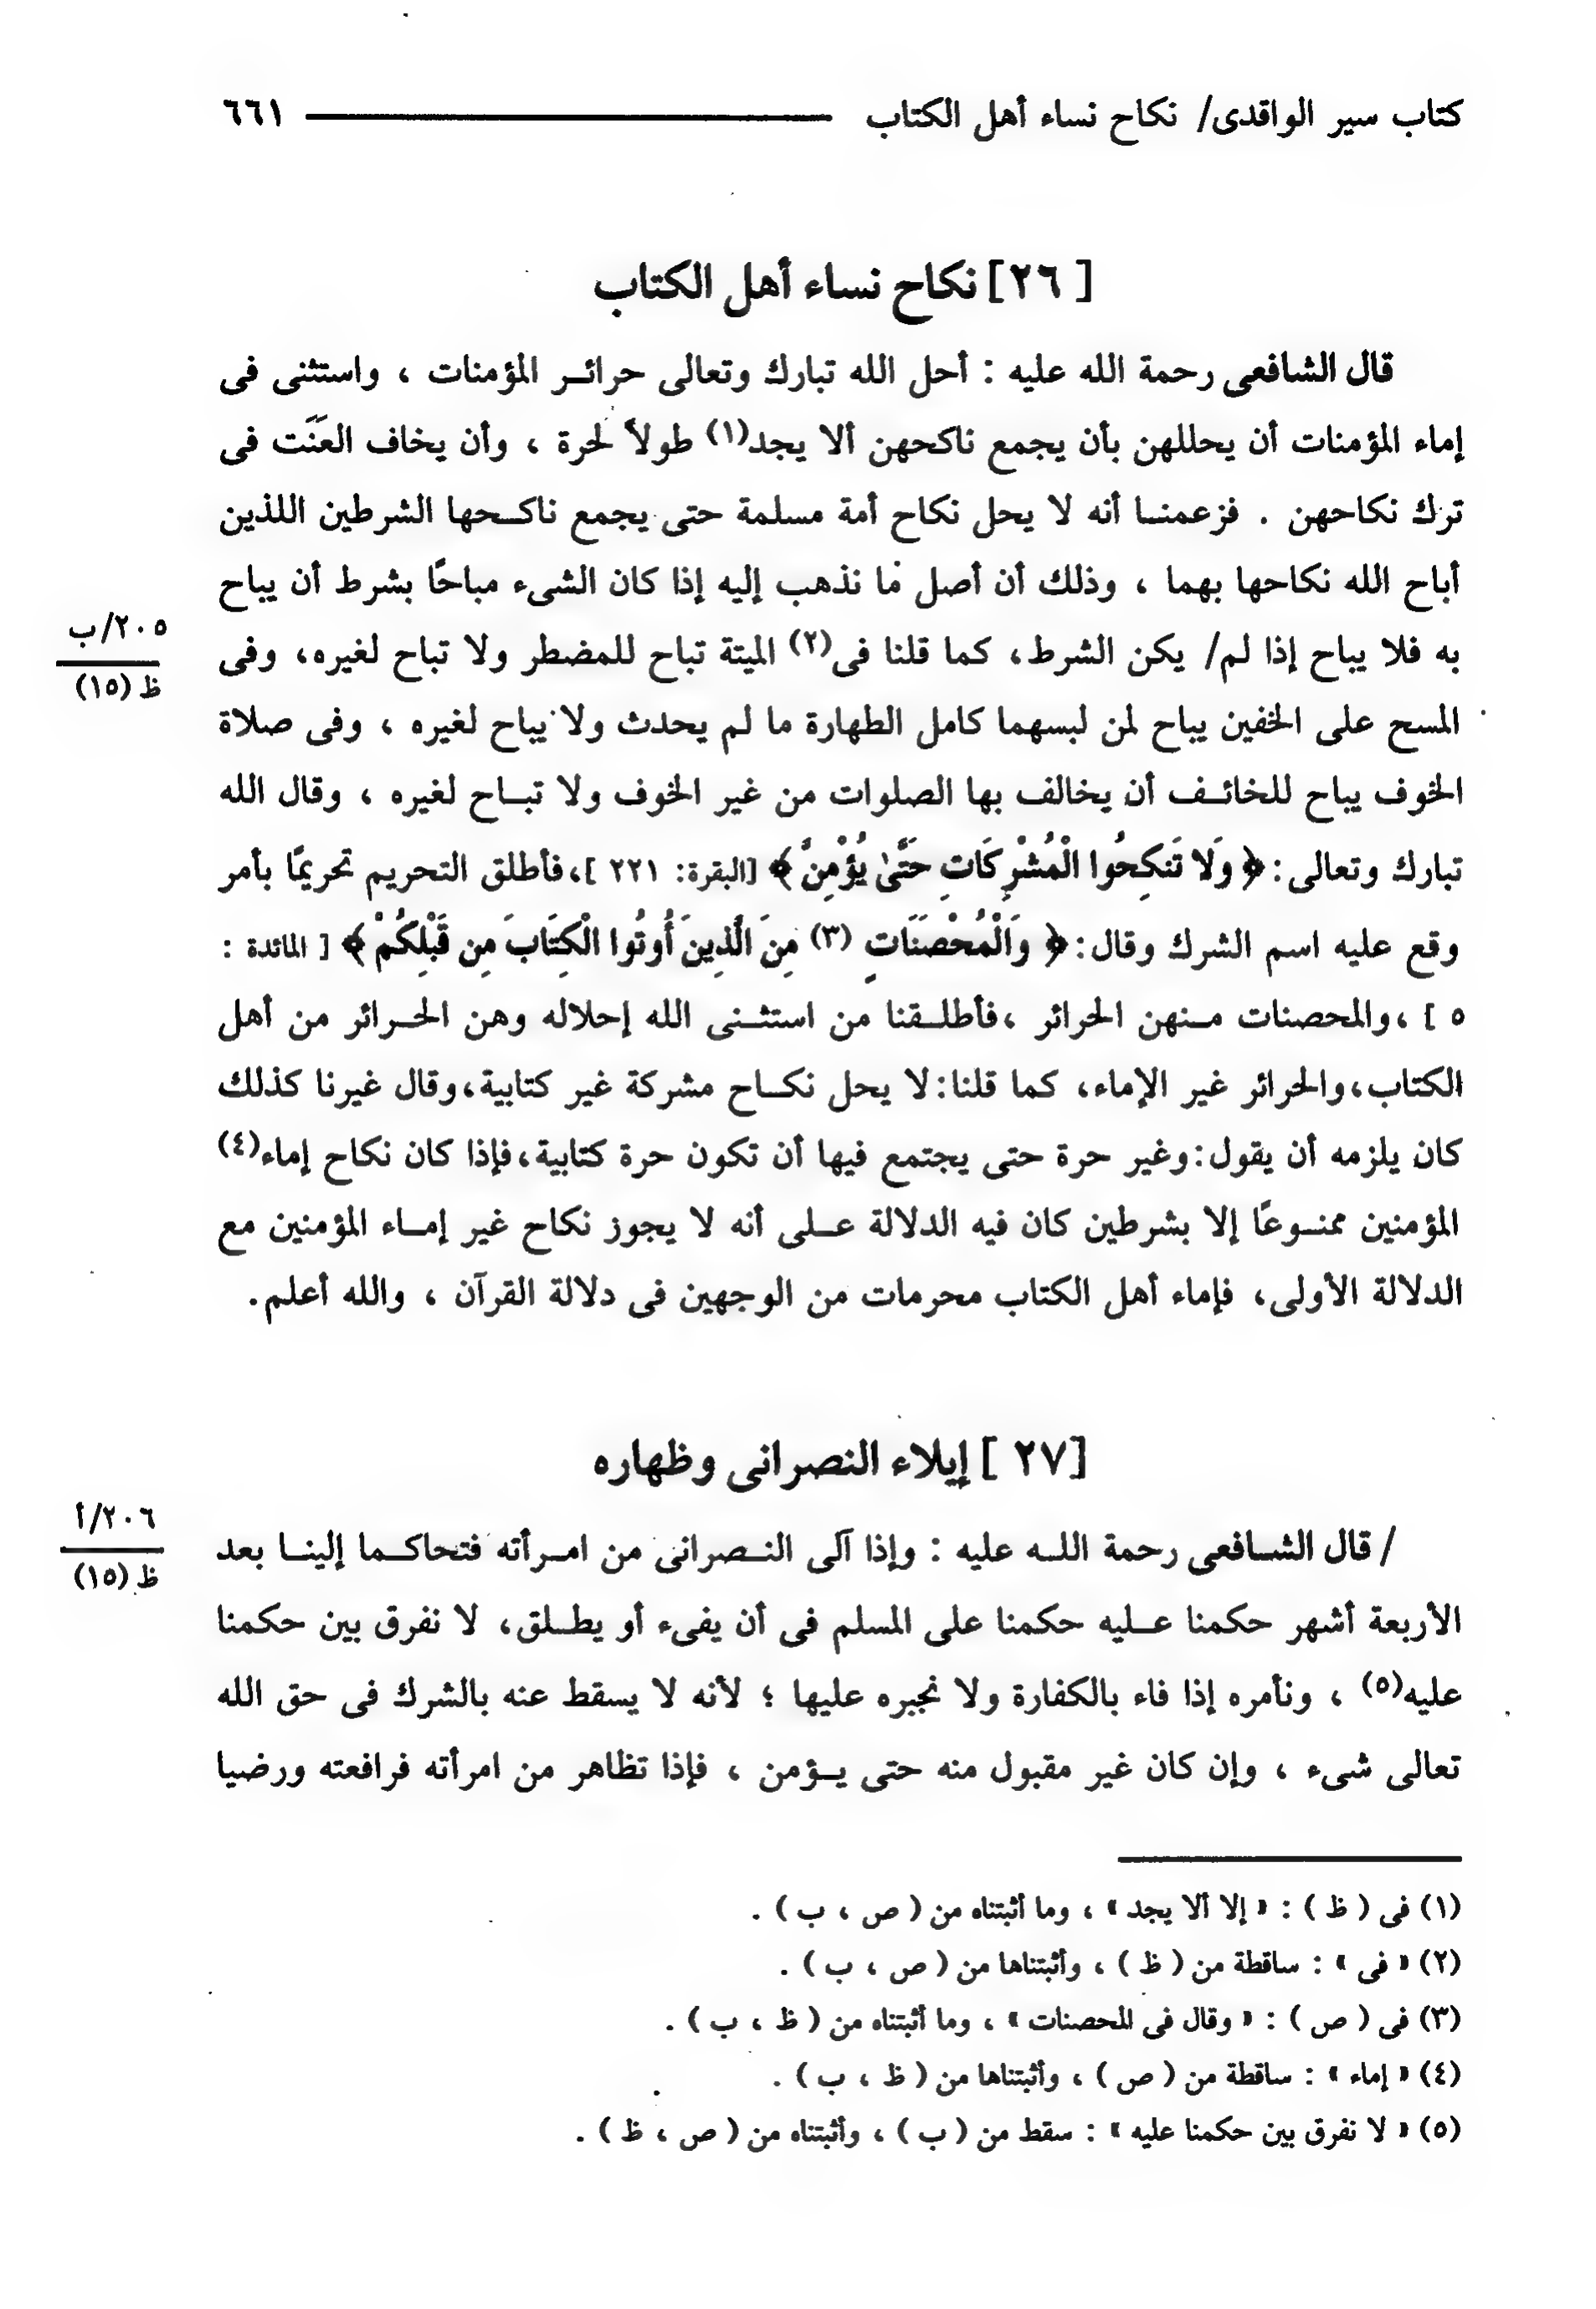 كتاب سير الواقدى/ نكاح نساء أهل الكتاب ٦٦١
[ ٢٦] نكاح نساء أهل الكتاب
قال الشافعى رحمة الله عليه : أحل الله تبارك وتعالى حرائر المؤمنات ، واستثنى فى
إماء المؤمنات أن يحللهن بأن يجمع ناكحهن ألا يجد(١) طولاً لحرة ، وأن يخاف العَنَت فى
ترك نكاحهن . فزعمنا أنه لا يحل نكاح أمة مسلمة حتى يجمع ناكحها الشرطين اللذين
أباح الله نكاحها بهما ، وذلك أن أصل ما نذهب إليه إذا كان الشىء مباحًا بشرط أن يباح
به فلا يباح إذا لم/ يكن الشرط، كما قلنا فى(٢) الميتة تباح للمضطر ولا تباح لغيره، وفى
٢٠٥/ب
ظ (١٥)
المسح على الخفين يباح لمن لبسهما كامل الطهارة ما لم يحدث ولا يباح لغيره ، وفى صلاة
الخوف يباح للخائف أن يخالف بها الصلوات من غير الخوف ولا تباح لغيره ، وقال الله
تبارك وتعالى: ﴿ وَلا تَنكِحُوا الْمُشْرِكَاتِ حَتَّىٰ يُؤْمِنَّ ﴾ [البقرة: ٢٢١ ]،فأطلق التحريم تحريمًا بأمر
وقع عليه اسم الشرك وقال: ﴿ وَالْمُحْصَنَاتِ (٣) مِنَ الَّذِينَ أُوتُوا الْكِتَابَ مِن قَبْلِكُمْ ﴾ [ المائدة :
٥ ] ،والمحصنات منهن الحرائر ،فأطلقنا من استثنى الله إحلاله وهن الحرائر من أهل
الكتاب،والحرائر غير الإماء، كما قلنا:لا يحل نكاح مشركة غير كتابية،وقال غيرنا كذلك
كان يلزمه أن يقول:وغير حرة حتى يجتمع فيها أن تكون حرة كتابية،فإذا كان نكاح إماء(٤)
المؤمنين ممنوعًا إلا بشرطين كان فيه الدلالة على أنه لا يجوز نكاح غير إماء المؤمنين مع
الدلالة الأولى، فإماء أهل الكتاب محرمات من الوجهين فى دلالة القرآن ، والله أعلم.
[٢٧ ] إيلاء النصرانى وظهاره
/ قال الشافعى رحمة الله عليه : وإذا آلى النصرانى من امرأته فتحاكما إلينا بعد
٢٠٦/أ
ظ (١٥)
الأربعة أشهر حكمنا عليه حكمنا على المسلم فى أن يفىء أو يطلق، لا نفرق بين حكمنا
عليه(٥) ، ونأمره إذا فاء بالكفارة ولا نجبره عليها ؛ لأنه لا يسقط عنه بالشرك فى حق الله
تعالى شىء ، وإن كان غير مقبول منه حتى يؤمن ، فإذا تظاهر من امرأته فرافعته ورضيا
(١) فى ( ظ ) : « إلا ألا يجد » ، وما أثبتناه من ( ص ، ب ) .
(٢) « فى » : ساقطة من ( ظ ) ، وأثبتناها من ( ص ، ب ) .
(٣) فى ( ص ) : « وقال فى المحصنات » ، وما أثبتناه من ( ظ ، ب ) .
(٤) « إماء » : ساقطة من ( ص ) ، وأثبتناها من ( ظ ، ب ) .
(٥) « لا نفرق بين حكمنا عليه » : سقط من ( ب ) ، وأثبتناه من ( ص ، ظ ) .